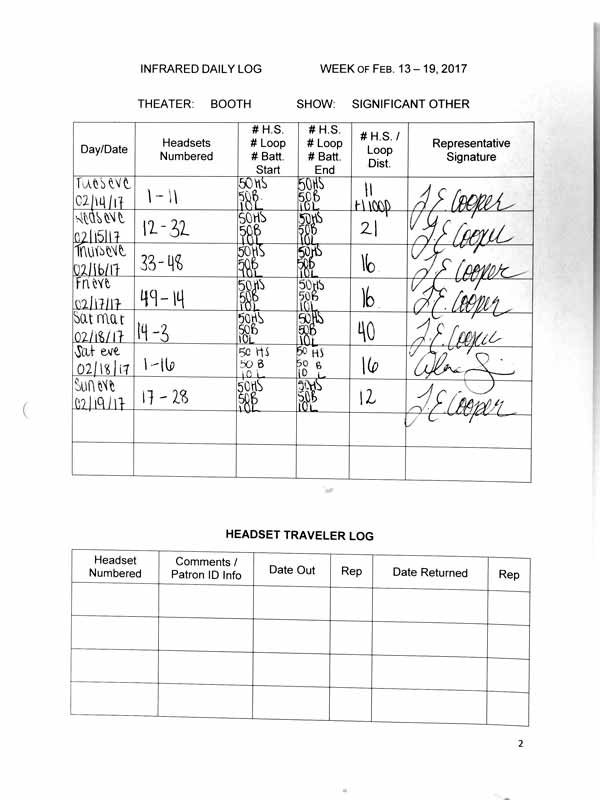 INFRARED DAILY LOG WEEK OF FEB. 13 – 19, 2017
THEATER: BOOTH SHOW: SIGNIFICANT OTHER
Day/Date
Headsets
Numbered
# H.S.
# Loop
# Batt.
Start
# H.S.
# Loop
# Batt.
End
# H.S. /
Loop
Dist.
Representative
Signature
Tues eve
02/14/17
1-11
50HS
50B
10L
50HS
50B
10L
11
+1 loop
J.E. Cooper
Wed eve
02/15/17
12-32
50HS
50B
10L
50HS
50B
10L
21
J.E. Cooper
Thurs eve
02/16/17
33-48
50HS
50B
10L
50HS
50B
10L
16
J.E. Cooper
Fri eve
02/17/17
49-14
50HS
50B
10L
50HS
50B
10L
16
J.E. Cooper
Sat mat
02/18/17
14-3
50HS
50B
10L
50HS
50B
10L
40
J.E. Cooper
Sat eve
02/18/17
1-16
50 HS
50 B
10 L
50 HS
50 B
10 L
16
Sun eve
02/19/17
17-28
50HS
50B
10L
50HS
50B
10L
12
J.E. Cooper
HEADSET TRAVELER LOG
Headset
Numbered
Comments /
Patron ID Info
Date Out
Rep
Date Returned
Rep
2